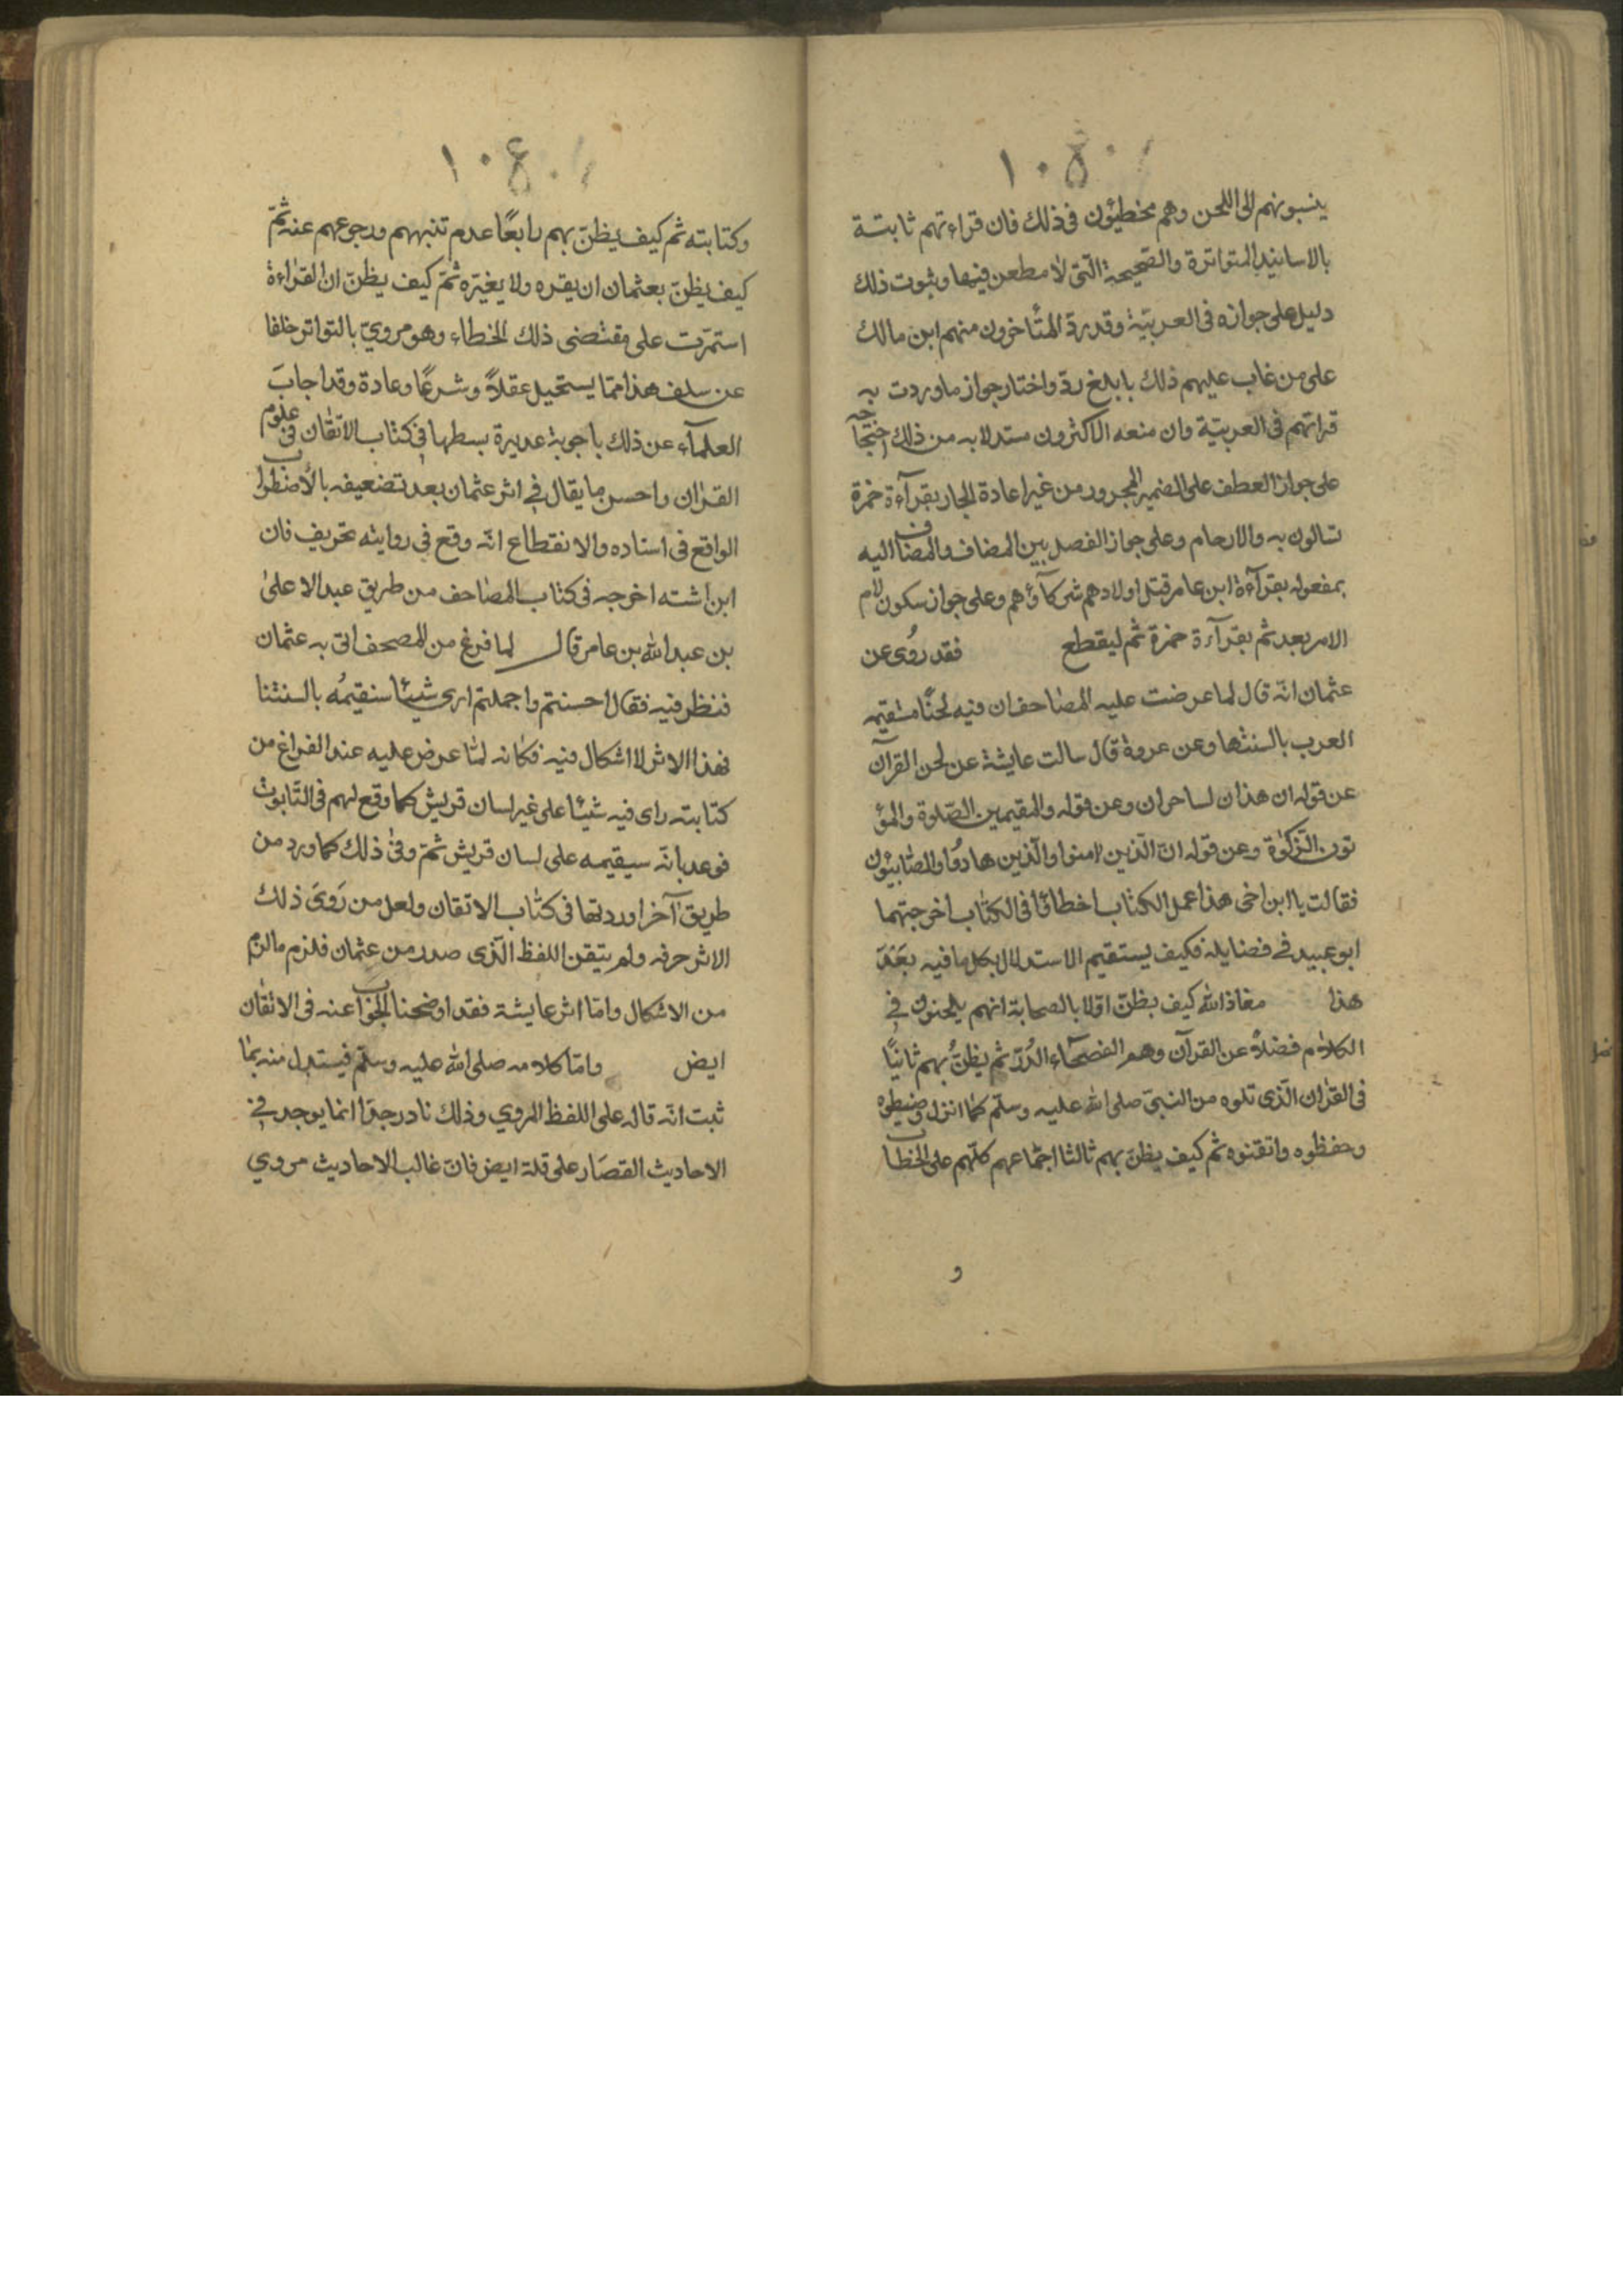 ١٠٥
ينسبونهم الى اللحن وهم مخطئون فى ذلك فان قراءتهم ثابتة
بالاسانيد المتواترة والصّحيحة الّتى لا مطعن فيها وثبوت ذلك
دليل على جوازه فى العربيّة وقد ردّ المتأخرون منهم ابن مالك
على من غاب عليهم ذلك بابلغ ردّ واختار جواز ما وردت به
قراتهم فى العربيّة وان منعه الاكثرون مستدلا به من ذلك احتجاجه
على جواز العطف على الضمير المجرور من غير اعادة الجار بقرآءة حمزة
تسالون به والارحام وعلى جواز الفصل بين المضاف والمضاف اليه
بمفعوله بقرآءة ابن عامر قتل اولادهم شركآؤهم وعلى جواز سكون لام
الامر بعد ثم بقرآءة حمزة ثم ليقطع فقد روُى عن
عثمان انّه قال لما عرضت عليه المصاحف ان فيه لحنًا ستقيمه
العرب بالسنتها وعن عروة قال سالت عايشة عن لحن القرآن
عن قوله ان هذان لساحران وعن قوله والمقيمين الصّلوة والمؤ
تون الزّكوة وعن قوله انّ الّذين امنوا والّذين هادوُا والصّابيئون
فقالت يا ابن اخى هذا عمل الكتاب اخطائوا فى الكتاب اخرجتهما
ابو عبيد فى فضايله فكيف يستقيم الاستدلال بكل ما فيه بَعْدَ
هذا معاذ الله كيف يظنّ اوّلا بالصحابة انهم يلحنون فى
الكلام فضلاً عن القرآن وهم الفصحآء الدُرّ ثم يظنُّ بهم ثانيًا
فى القران الّذى تلوه من النبىّ صلى الله عليه وسلّم كما انزل وضبطوه
وحفظوه واتقنوه ثم كيف يظنّ بهم ثالثا اجتماعهم كلّهم على الخطا
و
١٠٤
وكتابته ثم كيف يظنّ بهم رابعًا عدم تنبههم ورجوعهم عنه ثمّ
كيف يظنّ بعثمان ان يقره ولا يغيّره ثمّ كيف يظنّ ان القراءة
استمرّت على مقتضى ذلك الخطاء وهو مرويّ بالتواتر خلفا
عن سلف هذا ممّا يستحيل عقلاً وشرعًا وعادة وقد اجابَ
العلمآء عن ذلك باجوبة عديرة بسطها فى كتاب الاتقان فى علوم
القران واحسن ما يقال فى اثر عثمان بعد تضعيفه بالاضطراب
الواقع فى اسناده والانقطاع انّه وقع فى روايته تحريف فان
ابن اشته اخرجه فى كتاب المصاحف من طريق عبد الاعلى
بن عبد الله بن عامر قال لما فرغ من المصحف اتى به عثمان
فنظر فيه فقال احسنتم واجملتم ارى شيئا سنقيمُه بالسنتنا
فهذا الاثر لا اشكال فيه فكانه لمّا عرض عليه عند الفراغ من
كتابته راى فيه شيئًا على غير لسان قريش كما وقع لهم فى التّابوت
فوعد بانّه سيقيمه على لسان قريش ثمّ وفى ذلك كما ورد من
طريق آخر اوردتها فى كتاب الاتقان ولعل من رَوَىَ ذلك
الاثر حرفه ولم يتيقن اللفظ الّذى صدر من عثمان فلزم ما لزم
من الاشكال وامّا اثر عايشة فقد اوضحنا الجواب عنه فى الاتقان
ايض وامّا كلامه صلى الله عليه وسلّم فيستدل منه بما
ثبت انّه قاله على اللفظ المروي وذلك نادر جدّا انما يوجد فى
الاحاديث القصَار على قلة ايض فانّ غالب الاحاديث مروي